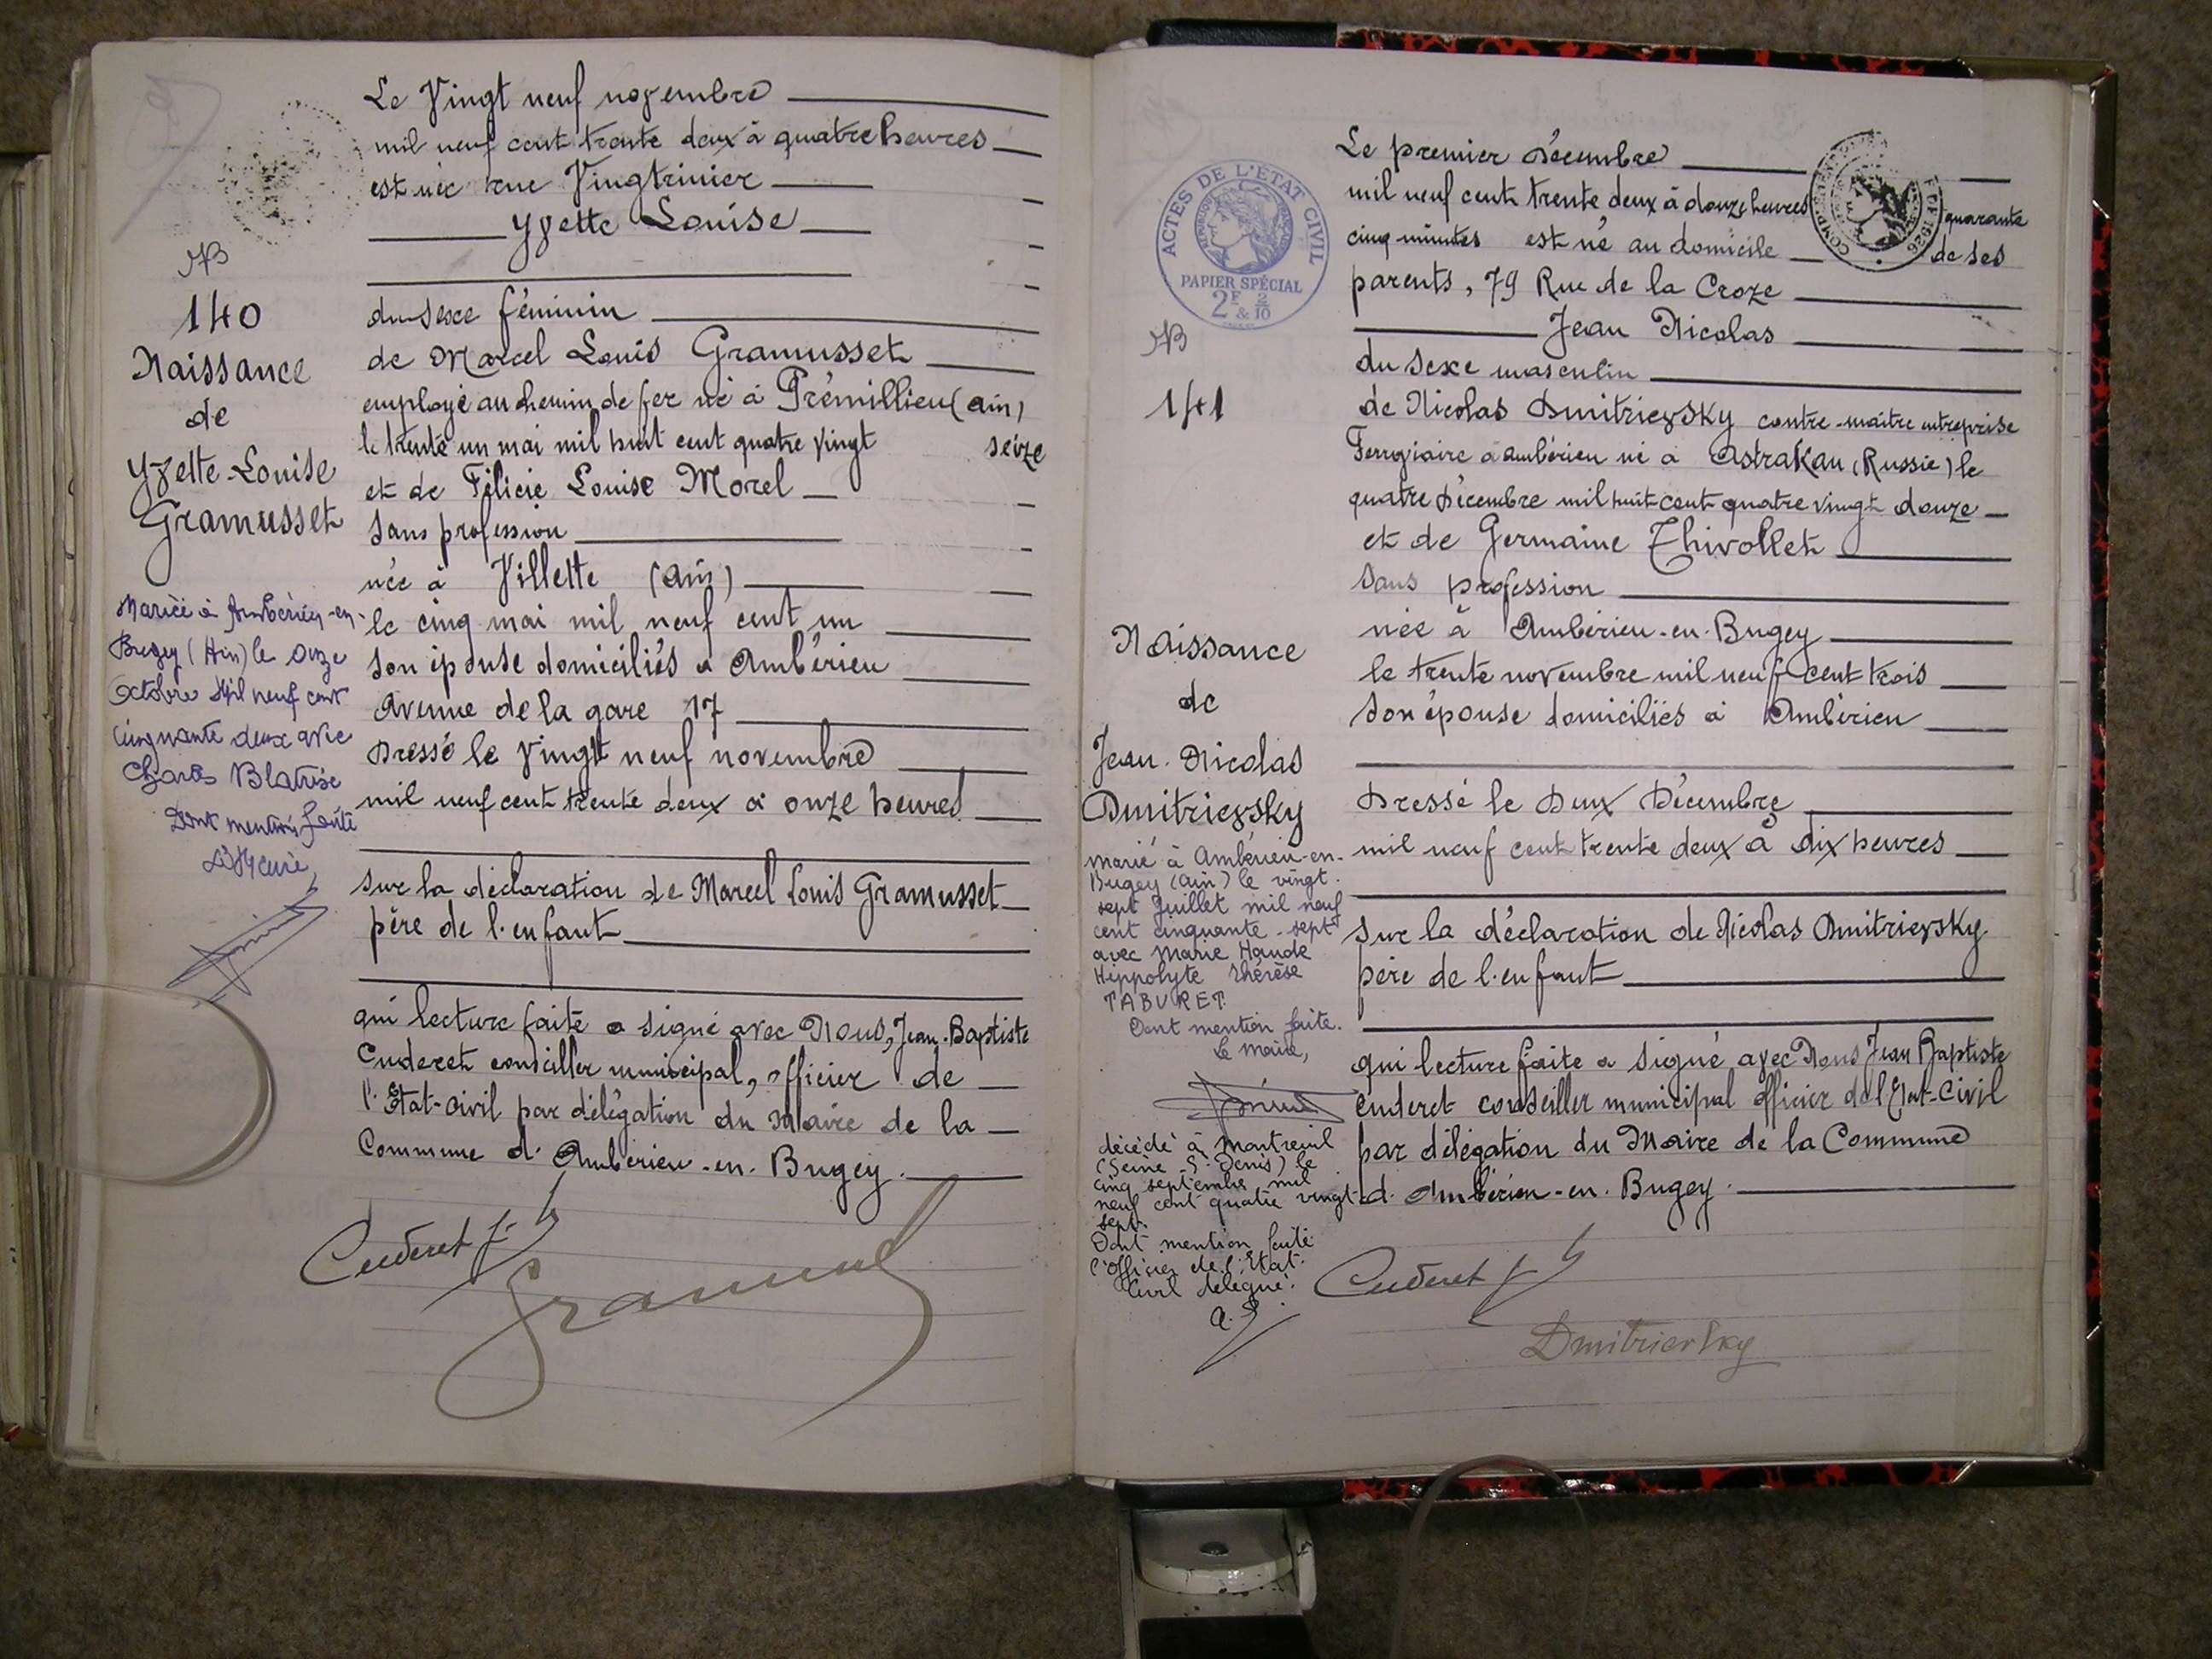 Le Vingt neuf novembre
mil neuf cent trente deux à quatre heures
est née rue Vingtrinier
Yvette Louise
NB
140
Naissance
de
Yvette-Louise
Gramusset
du sexe féminin
de Marcel Louis Gramusset
employé au chemin de fer né à Prémillieu (ain)
le trente un mai mil huit cent quatre vingt seize
et de Félicie Louise Morel
Sans profession
née à Villette (ain)
le cinq mai mil neuf cent un
son épouse domiciliés à Ambérieu
Avenue de la gare 17
Dressé le Vingt neuf novembre
mil neuf cent trente deux à onze heures
sur la déclaration de Marcel Louis Gramusset
père de l'enfant
qui lecture faite a signé avec Nous, Jean-Baptiste
Cuderet conseiller municipal, officier de
l'Etat-Civil par délégation du Maire de la
Commune d'Ambérieu-en-Bugey.
Mariée à Ambérieu-en-
Bugey (Ain) le onze
Octobre Mil neuf cent
cinquante deux avec
Charles
Dont mention faite
Cuderet J
Gramusset
ACTES DE L'ETAT CIVIL
PAPIER SPÉCIAL
2F & 2/10
NB
141
Naissance
de
Jean-Nicolas
Dmitrievsky
Le premier Décembre
mil neuf cent trente deux à douze heures quarante
cinq minutes est né au domicile de ses
parents, 79 Rue de la Croze
Jean Nicolas
du sexe masculin
de Nicolas Dmitrievsky contre-maître entreprise
à Ambérieu né à Astrakan (Russie) le
quatre Décembre mil huit cent quatre vingt douze
et de Germaine Thivollet
Sans profession
née à Ambérieu-en-Bugey
le trente novembre mil neuf cent trois
son épouse domiciliés à Ambérieu
Dressé le Deux Décembre
mil neuf cent trente deux à dix heures
sur la déclaration de Nicolas Dmitrievsky
père de l'enfant
qui lecture faite a signé avec Nous Jean Baptiste
Cuderet conseiller municipal officier de l'Etat-Civil
par délégation du Maire de la Commune
d'Ambérieu-en-Bugey.
marié à Ambérieu-en-
Bugey (Ain) le vingt-
sept Juillet mil neuf
cent cinquante-sept
avec Marie Haude
Hippolyte Thérèse
TABURET
Dont mention faite.
Le Maire,
décédé à Montreuil
(Seine-S-Denis) le
cinq septembre mil
neuf cent quatre vingt
sept.
Dont mention faite
l'Officier de l'Etat.
Civil délégué.
Cuderet J
Dmitrievsky